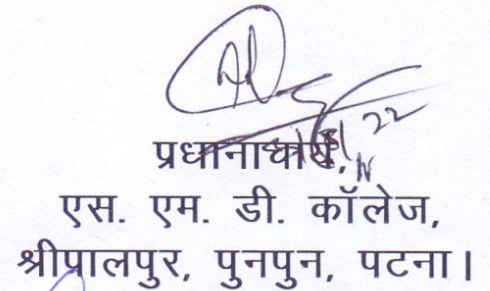 प्रधानाचार्य,
एस. एम. डी. कॉलेज,
श्रीपालपुर, पुनपुन, पटना।